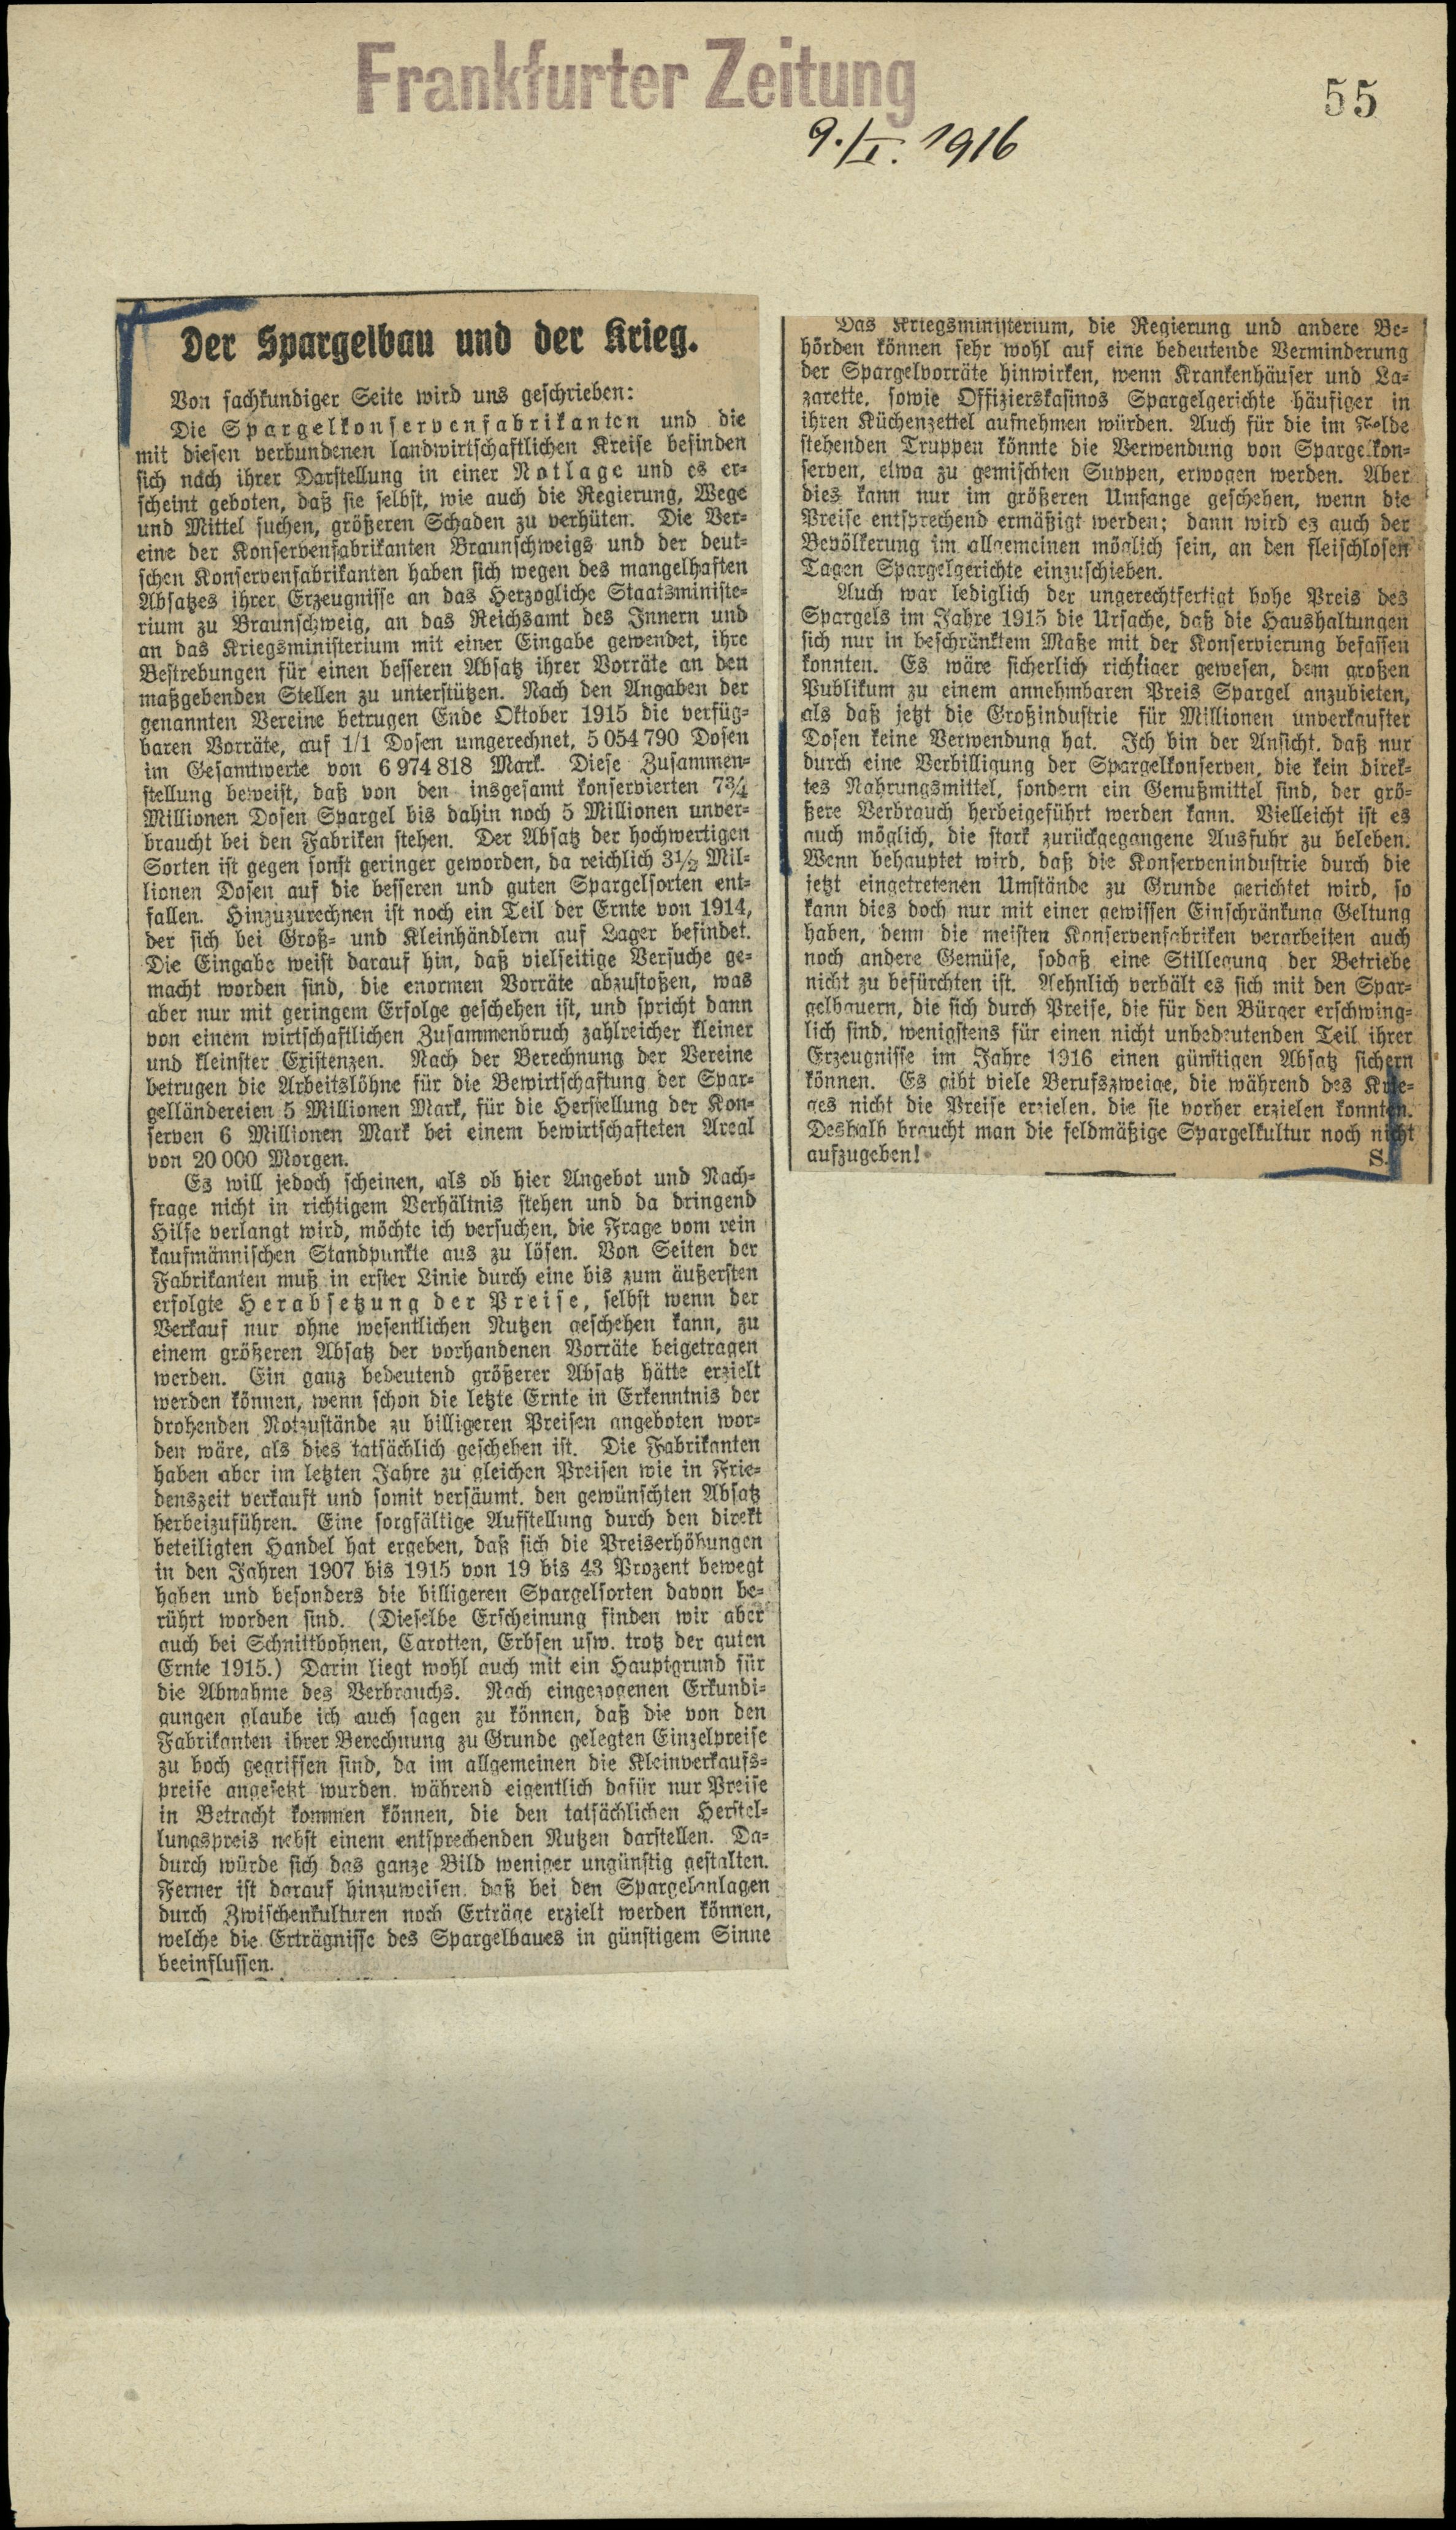 Frankfurter Zeitung
55
9./I. 1916
Der Spargelbau und der Krieg.
Von fachkundiger Seite wird uns geschrieben:
Die Spargelkonservenfabrikanten und die
mit diesen verbundenen landwirtschaftlichen Kreise befinden
sich nach ihrer Darstellung in einer Notlage und es er-
scheint geboten, daß sie selbst, wie auch die Regierung, Wege
und Mittel suchen, größeren Schaden zu verhüten. Die Ver-
eine der Konservenfabrikanten Braunschweigs und der deut-
schen Konservenfabrikanten haben sich wegen des mangelhaften
Absatzes ihrer Erzeugnisse an das Herzogliche Staatsministe-
rium zu Braunschweig, an das Reichsamt des Innern und
an das Kriegsministerium mit einer Eingabe gewendet, ihre
Bestrebungen für einen besseren Absatz ihrer Vorräte an den
maßgebenden Stellen zu unterstützen. Nach den Angaben der
genannten Vereine betrugen Ende Oktober 1915 die verfüg-
baren Vorräte, auf 1/1 Dosen umgerechnet, 5 054 790 Dosen
im Gesamtwerte von 6 974 818 Mark. Diese Zusammen-
stellung beweist, daß von den insgesamt konservierten 7¾
Millionen Dosen Spargel bis dahin noch 5 Millionen unver-
braucht bei den Fabriken stehen. Der Absatz der hochwertigen
Sorten ist gegen sonst geringer geworden, da reichlich 3½ Mil-
lionen Dosen auf die besseren und guten Spargelsorten ent-
fallen. Hinzuzurechnen ist noch ein Teil der Ernte von 1914,
der sich bei Groß- und Kleinhändlern auf Lager befindet.
Die Eingabe weist darauf hin, daß vielseitige Versuche ge-
macht worden sind, die enormen Vorräte abzustoßen, was
aber nur mit geringem Erfolge geschehen ist, und spricht dann
von einem wirtschaftlichen Zusammenbruch zahlreicher kleiner
und kleinster Existenzen. Nach der Berechnung der Vereine
betrugen die Arbeitslöhne für die Bewirtschaftung der Spar-
gelländereien 5 Millionen Mark, für die Herstellung der Kon-
serven 6 Millionen Mark bei einem bewirtschafteten Areal
von 20 000 Morgen.
Es will jedoch scheinen, als ob hier Angebot und Nach-
frage nicht in richtigem Verhältnis stehen und da dringend
Hilfe verlangt wird, möchte ich versuchen, die Frage vom rein
kaufmännischen Standpunkte aus zu lösen. Von Seiten der
Fabrikanten muß in erster Linie durch eine bis zum äußersten
erfolgte Herabsetzung der Preise, selbst wenn der
Verkauf nur ohne wesentlichen Nutzen geschehen kann, zu
einem größeren Absatz der vorhandenen Vorräte beigetragen
werden. Ein ganz bedeutend größerer Absatz hätte erzielt
werden können, wenn schon die letzte Ernte in Erkenntnis der
drohenden Notzustände zu billigeren Preisen angeboten wor-
den wäre, als dies tatsächlich geschehen ist. Die Fabrikanten
haben aber im letzten Jahre zu gleichen Preisen wie in Frie-
denszeit verkauft und somit versäumt, den gewünschten Absatz
herbeizuführen. Eine sorgfältige Aufstellung durch den direkt
beteiligten Handel hat ergeben, daß sich die Preiserhöhungen
in den Jahren 1907 bis 1915 von 19 bis 43 Prozent bewegt
haben und besonders die billigeren Spargelsorten davon be-
rührt worden sind. (Dieselbe Erscheinung finden wir aber
auch bei Schnittbohnen, Carotten, Erbsen usw. trotz der guten
Ernte 1915.) Darin liegt wohl auch mit ein Hauptgrund für
die Abnahme des Verbrauchs. Nach eingezogenen Erkundi-
gungen glaube ich auch sagen zu können, daß die von den
Fabrikanten ihrer Berechnung zu Grunde gelegten Einzelpreise
zu hoch gegriffen sind, da im allgemeinen die Kleinverkaufs-
preise angesetzt wurden, während eigentlich dafür nur Preise
in Betracht kommen können, die den tatsächlichen Herstel-
lungspreis nebst einem entsprechenden Nutzen darstellen. Da-
durch würde sich das ganze Bild weniger ungünstig gestalten.
Ferner ist darauf hinzuweisen, daß bei den Spargelanlagen
durch Zwischenkulturen noch Erträge erzielt werden können,
welche die Erträgnisse des Spargelbaues in günstigem Sinne
beeinflussen.
Das Kriegsministerium, die Regierung und andere Be-
hörden können sehr wohl auf eine bedeutende Verminderung
der Spargelvorräte hinwirken, wenn Krankenhäuser und La-
zarette, sowie Offizierskasinos Spargelgerichte häufiger in
ihren Küchenzettel aufnehmen würden. Auch für die im Felde
stehenden Truppen könnte die Verwendung von Spargelkon-
serven, etwa zu gemischten Suppen, erwogen werden. Aber
dies kann nur im größeren Umfange geschehen, wenn die
Preise entsprechend ermäßigt werden; dann wird es auch der
Bevölkerung im allgemeinen möglich sein, an den fleischlosen
Tagen Spargelgerichte einzuschieben.
Auch war lediglich der ungerechtfertigt hohe Preis des
Spargels im Jahre 1915 die Ursache, daß die Haushaltungen
sich nur in beschränktem Maße mit der Konservierung befassen
konnten. Es wäre sicherlich richtiger gewesen, dem großen
Publikum zu einem annehmbaren Preis Spargel anzubieten,
als daß jetzt die Großindustrie für Millionen unverkaufter
Dosen keine Verwendung hat. Ich bin der Ansicht, daß nur
durch eine Verbilligung der Spargelkonserven, die kein direk-
tes Nahrungsmittel, sondern ein Genußmittel sind, der grö-
ßere Verbrauch herbeigeführt werden kann. Vielleicht ist es
auch möglich, die stark zurückgegangene Ausfuhr zu beleben.
Wenn behauptet wird, daß die Konservenindustrie durch die
jetzt eingetretenen Umstände zu Grunde gerichtet wird, so
kann dies doch nur mit einer gewissen Einschränkung Geltung
haben, denn die meisten Konservenfabriken verarbeiten auch
noch andere Gemüse, sodaß eine Stillegung der Betriebe
nicht zu befürchten ist. Aehnlich verhält es sich mit den Spar-
gelbauern, die sich durch Preise, die für den Bürger erschwing-
lich sind, wenigstens für einen nicht unbedeutenden Teil ihrer
Erzeugnisse im Jahre 1916 einen günstigen Absatz sichern
können. Es gibt viele Berufszweige, die während des Krie-
ges nicht die Preise erzielen, die sie vorher erzielen konnten.
Deshalb braucht man die feldmäßige Spargelkultur noch nicht
aufzugeben!
S.